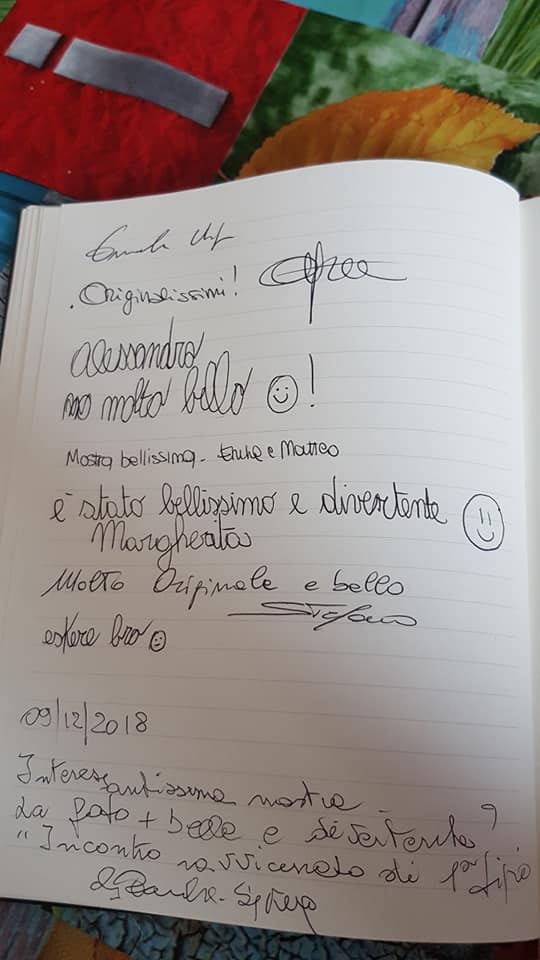 Originalissimi!
Alessandra
molto bello !
Mostra bellissima - e Matteo
è stato bellissimo e divertente
Margherita
Molto Originale e bello
Stefano
estere bro
09/12/2018
Interes
santissima mostra -
La foto + bella e divertente?
"Incontro ravvicinato di